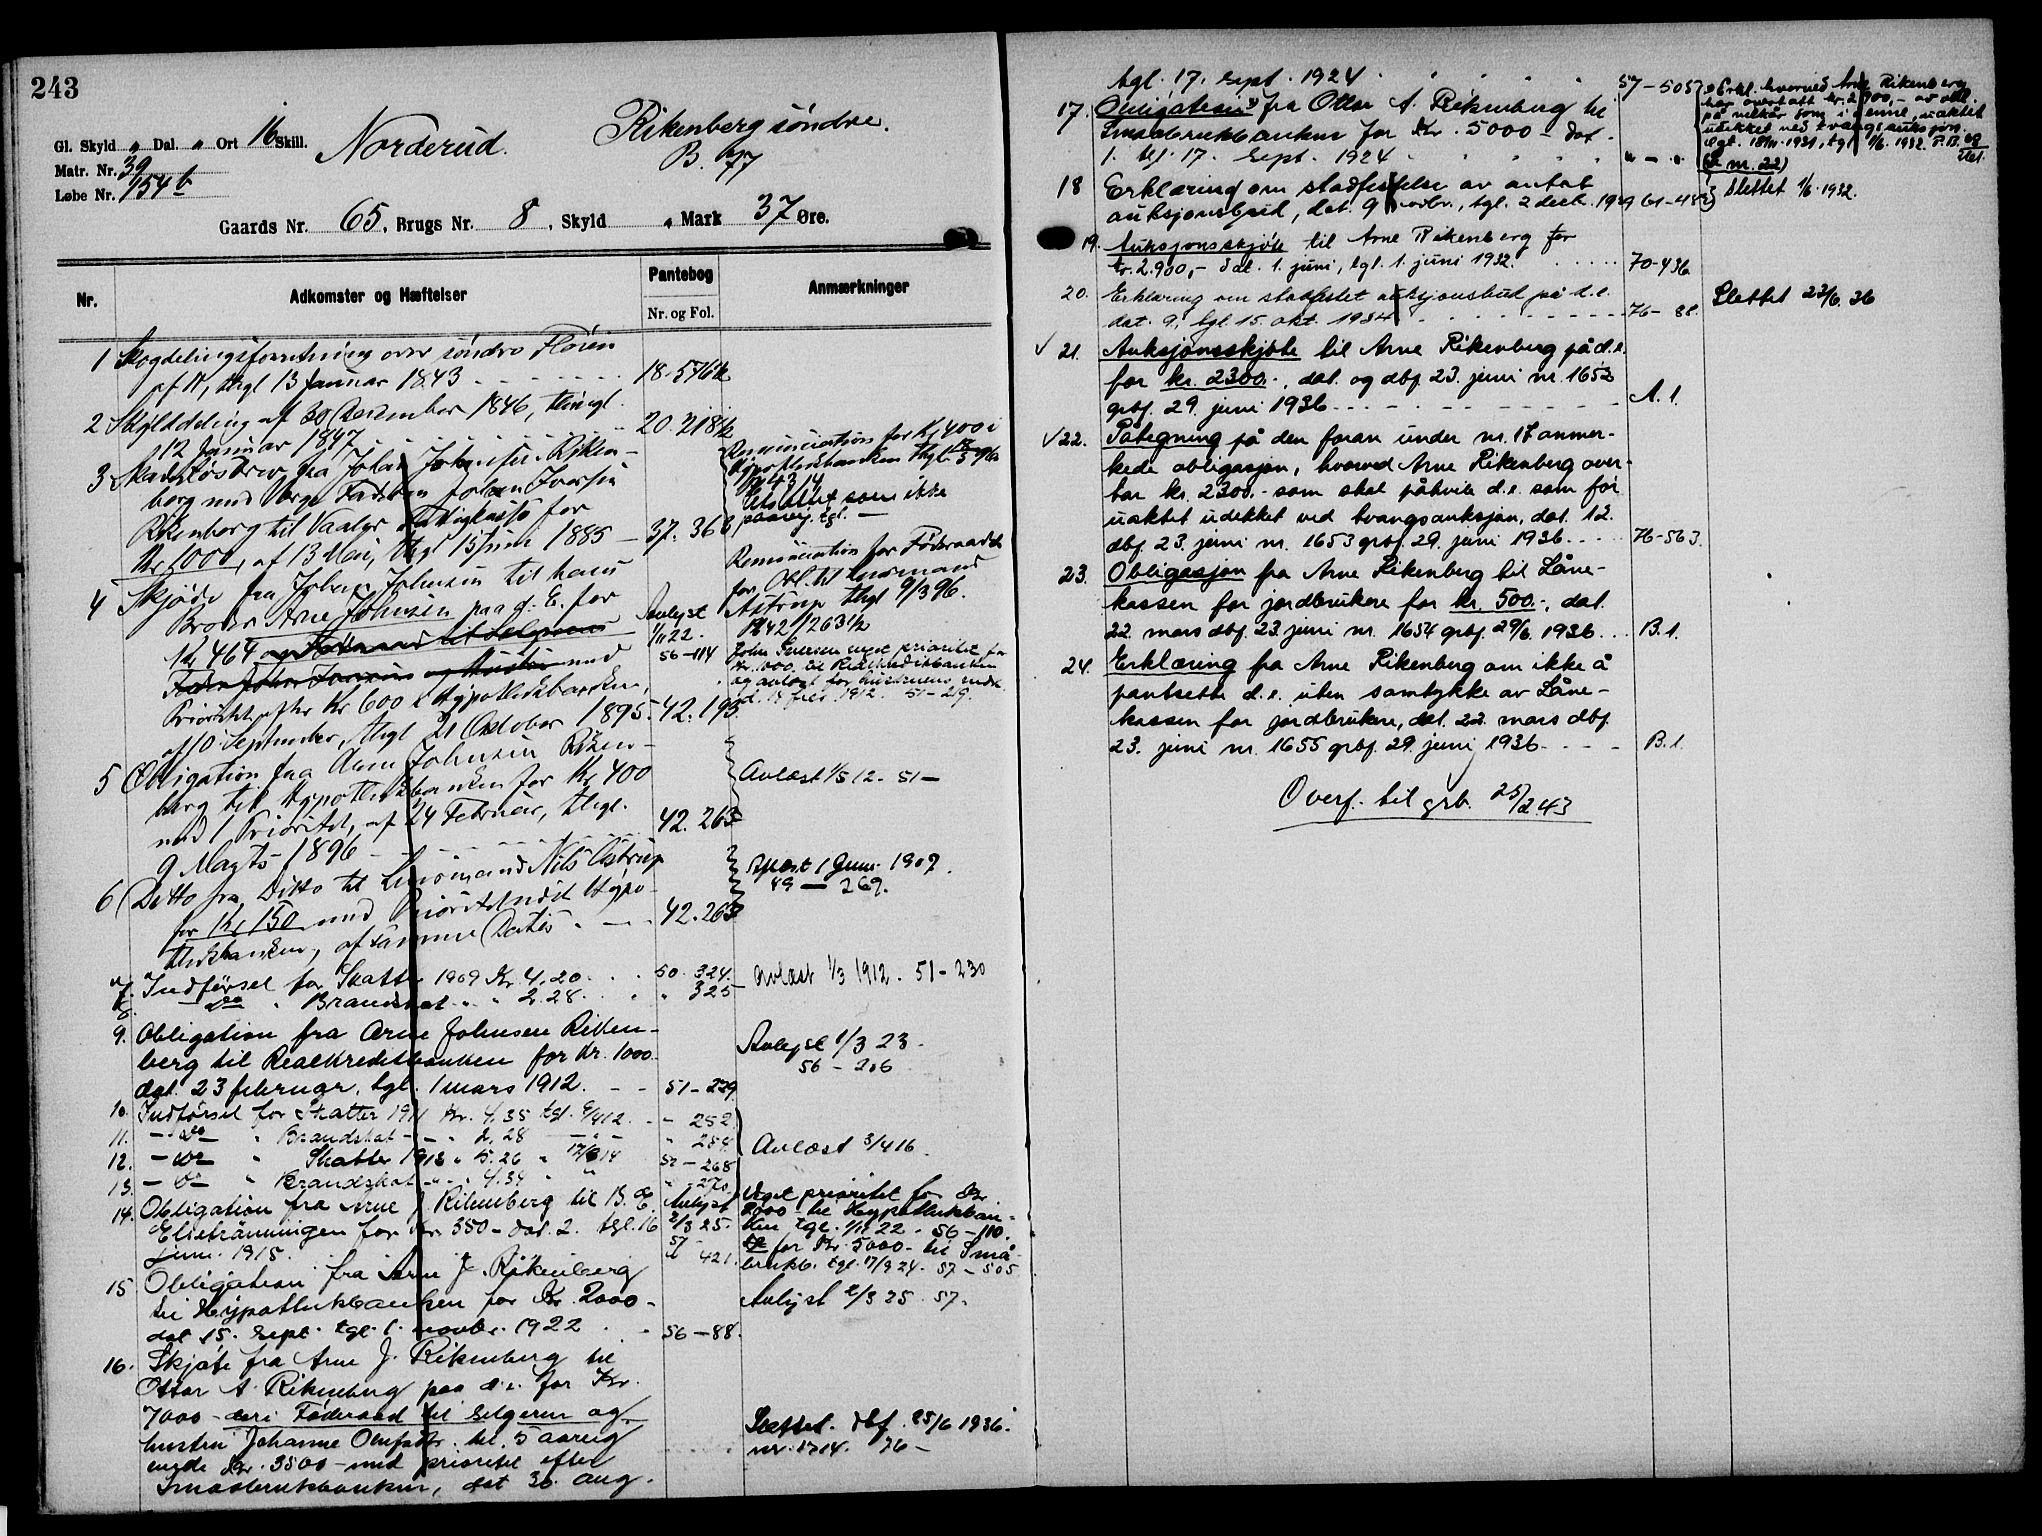 243
Gl. Skyld „ Dal. „ Ort 16 Skill.
Matr. Nr. 39
Løbe Nr. 154b
Norderud.
Rikenberg søndre.
B.
Gaards Nr. 65, Brugs Nr. 8, Skyld „ Mark 37 Øre.
Nr.
Adkomster og Hæftelser
Pantebog
Nr. og Fol.
Anmærkninger
1 Skogdelingsforretning over søndre Fløien
af , thgl 13 Januar 1843 18-576b
2 Skylddeling af 30 December 1846, thingl.
12 Januar 1847 20-218b
3 Skadesløsbrev fra Johan Johnsen Riken-
berg med Faderen Johan Iversen
Rikenberg til Vaaler Fattigkasse for
Kr 1000, af 13 Mai, thgl 15 Juni 1885 — 37. 36
4 Skjøde fra Johan Johnsen til hans
Broder Arne Johnsen paa d. E. for
Kr 464 og Føderaad til Selgerens
Fader Johan Iversen og Hustru med
Prioritet efter Kr 600 i Hypothekbanken,
af 10 September, thgl 21 October 1895. 42. 195
Avlyst
1/11 22.
56-114
Renunciation for Kr 400 i
Hypothekbanken thgl
som ikke
paavej. tgl. —
Renunciation for Føderaadet
for Obl. til Lensmand
Astrup thgl 9/3 96.
42/263b
prioritet for
kr. 1000 til Realkreditbanken
og avløst for hustruens vedk.
1912. 51-219
5 Obligation fra Arne Johnsen Riken-
berg til Hypothekbanken for Kr 400
med 1 Prioritet, af 24 Februar, thgl.
9 Marts 1896 42. 263
Avlæst 1/3 12. 51—
6 Ditto fra Ditto til Lensmand Nils Astrup
for Kr 150 med Prioritet næst Hypo-
thekbanken, af samme Datis 42. 263
Aflæst 1 Juni 1907.
49 — 269.
7. Indførsel for Skatter 1909 Kr. 4.20 50. 324.
8. — do — " Brandskat " " 2.28 " 325
Avlæst 1/3 1912. 51-230
9. Obligation fra Arne Johnsen Riken-
berg til Realkreditbanken for Kr. 1000.
dat. 23 februar, tgl. 1 mars 1912. 51-229
Avlyst 1/3 23.
56 - 206
10. Indførsel for Skatter 1911 Kr. 4.35 tgl. 9/4 12. - 252
11. — do — " Brandskat — " 2.28 — " — " 254
12. — do — " Skatter 1913 " 5.26 " 17/3 14 52-268
13. — do — " Brandskat " " 4.34 " " - 270
Avlæst 3/4 16.
14. Obligation fra Arne J. Rikenberg til B. E.
for Kr. 350 - dat. 2. tgl. 16
juni 1915. 421.
Avlyst
2/3 25.
57
Veget prioritet for Kr.
2000 til Hypothekban-
ken tgl. 1/11 22. 56-110.
for Kr. 5000 - til Små
brukb. tgl. 17/9 24. 57-505
15 Obligation fra Arne J. Rikenberg
til Hypothekbanken for Kr. 2000 -
dat 15. sept. tgl. 1. novbr. 1922 56-88.
Avlyst 2/3 25. 57.
16. Skjøte fra Arne J. Rikenberg til
Ottar A. Rikenberg paa d. e. for Kr.
7000 - deri Føderaad til selgeren og
hustru Johanne Olufsdtr. til 5 aarig
Kr. 3500 - med prioritet efter
Smaabrukbanken, dat 30. aug.
Slettet. dbf. 25/6 1936.
nr. 1714. 76 —
tgl. 17. sept. 1924 57-505
17. Obligation fra Ottar A. Rikenberg til
Smaabrukbanken for Kr. 5000 - dat
1. tgl. 17. sept. 1924 " - "
Erkl. hvorved Arne Rikenberg
har overtatt kr. 2900,- av obl.
på vilkår som i denne, uaktet
udekket ved tvangsauksjon.
1931, tgl 1/6. 1932. P.B.
(Se nr. 22)
18 Erklæring om stadfestelse av antat
auksjonsbud, dat. 9 novbr., tgl. 2 decb. 1929 61-483
Slettet 1/6. 1932.
19. Auksjonsskjøte til Arne Rikenberg for
kr. 2.900,- dat. 1. juni, tgl. 1. juni 1932. 70-436
20. Erklæring om stadfestet auksjonsbud på d. e.
dat. 9, tgl. 15. okt. 1934 76- 88.
Slettet 23/6. 36
✓ 21. Auksjonsskjøte til Arne Rikenberg på d. e.
for kr. 2300.-, dat. og dbf. 23. juni nr. 1652
grbf. 29. juni 1936 A. 1.
✓ 22. Påtegning på den foran under nr. 17 anmer-
kede obligasjon, hvorved Arne Rikenberg over-
tar kr. 2300.- som skal påhvile d. e. som før
uaktet udekket ved tvangsauksjon, dat. 12.
dbf. 23. juni nr. 1653 grbf. 29. juni 1936 76-563.
23. Obligasjon fra Arne Rikenberg til Låne-
kassen for jordbrukere for kr. 500.-, dat.
22. mars dbf. 23. juni nr. 1654 grbf. 29/6. 1936 B. 1.
24. Erklæring fra Arne Rikenberg om ikke å
pantsette d. e. uten samtykke av Låne-
kassen for jordbrukere, dat. 22. mars dbf.
23. juni nr. 1655 grbf. 29. juni 1936 B. 1.
Overf. til grb. 25/2.43